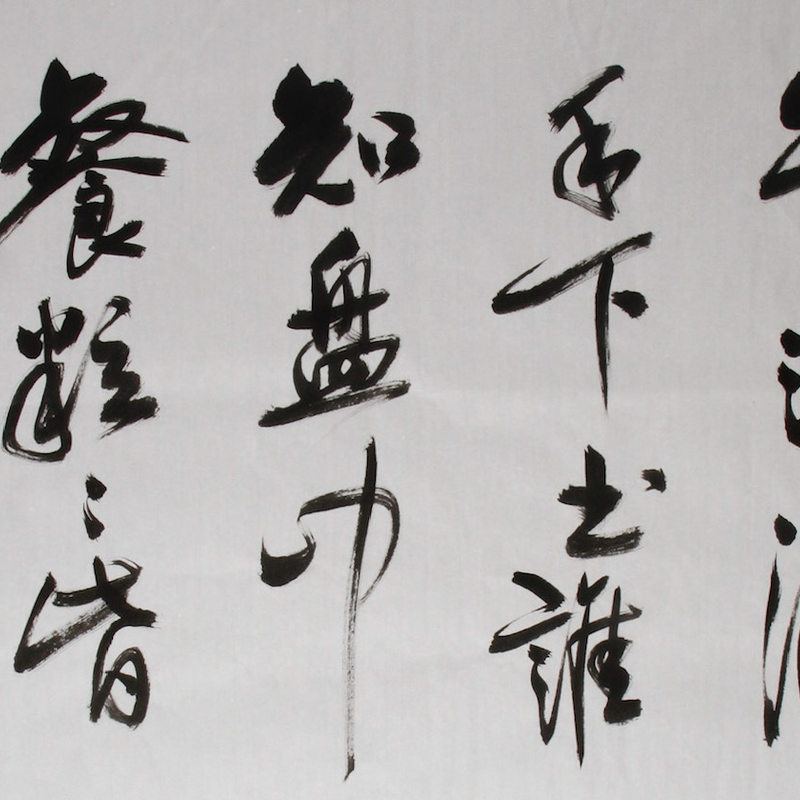 禾下土誰
知盘中
餐粒〻皆